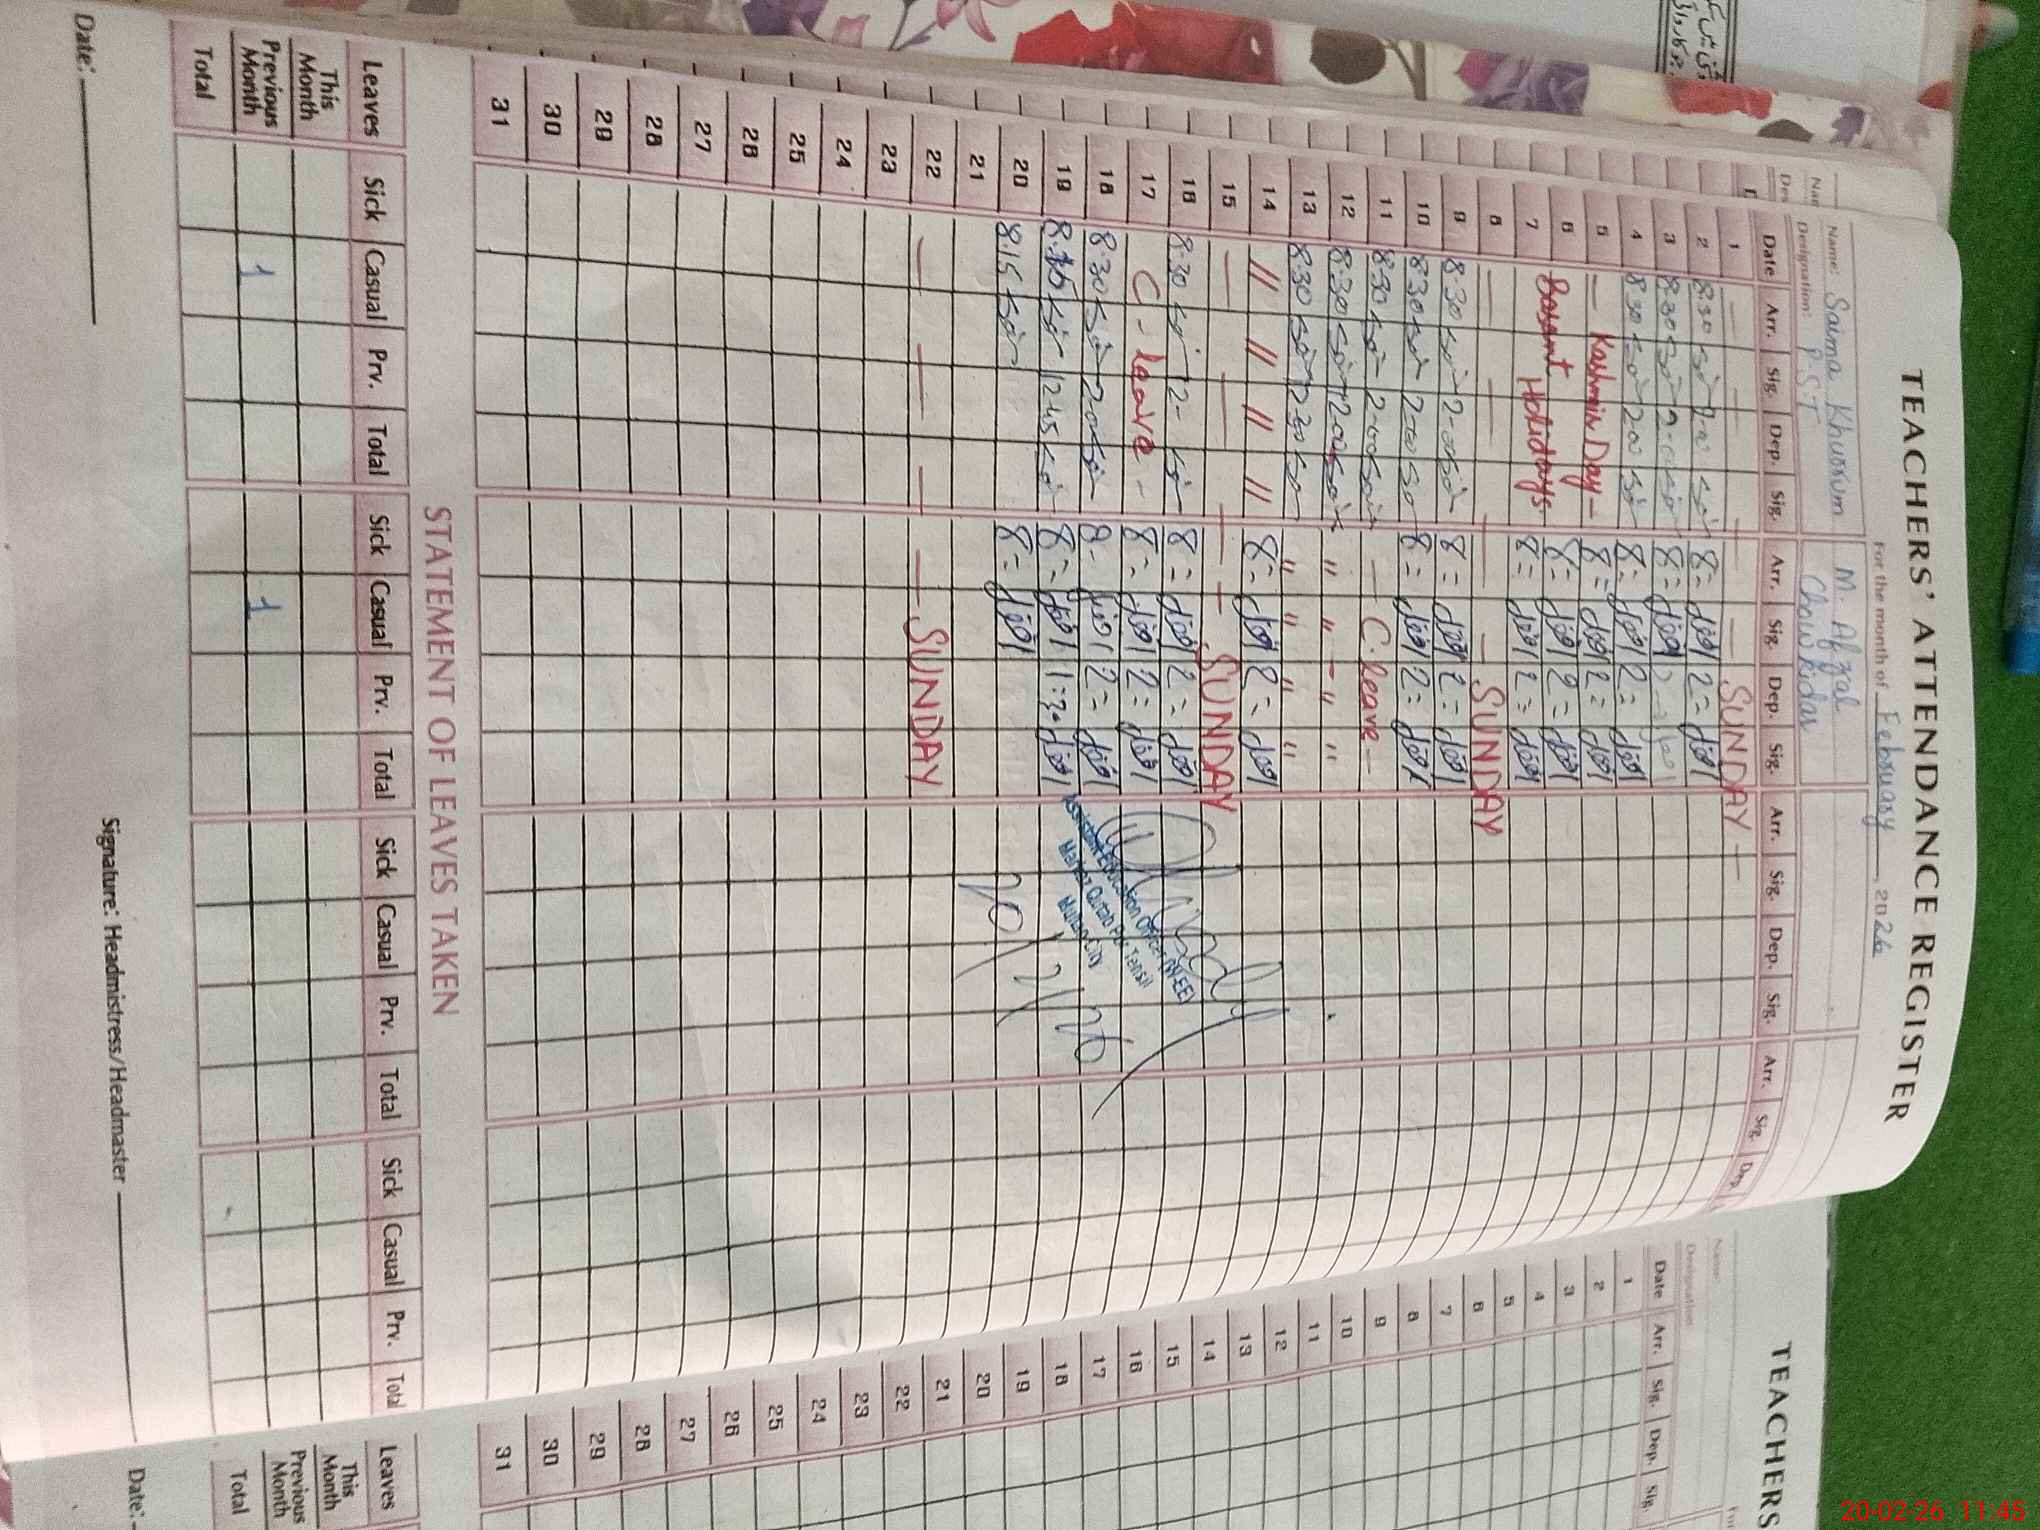 TEACHERS' ATTENDANCE REGISTER
For the month of February, 2026
Name: Saima Khursum M. Afzal
Designation: P.S.T Chowkidar
Date Arr. Sig. Dep. Sig. Arr. Sig. Dep. Sig. Arr. Sig. Dep. Sig. Arr. Sig. Dep.
1 — — — — SUNDAY —
2 8:30 2-0 8= 2=
3 8:30 2-0 8=
4 8:30 2:00 8= 2=
5 — Kashmir Day - 8= 2=
6 Basant 8= 2=
7 Holidays 8= 2=
8 — — — — SUNDAY
9 8:30 2-00 8= 2=
10 8:30 2-00 8= 2=
11 8:30 2-00 — C. leave —
12 8:30 2:00 " " - " "
13 8:30 12:30 " " " "
14 " " " " 8= 2=
15 — — — — SUNDAY
16 8:30 2- 8= 2=
17 C - leave - 8= 2=
18 8:30 2-0 8- 2=
19 8:15 12:45 8= 1:30
20 8:15 8=
21
22 — — — — SUNDAY
23
24
25
26
27
28
29
30
31
Assistant Education Officer (W-EE)
Markaz Qutab Pur Tehsil
Multan City
20/2/26
STATEMENT OF LEAVES TAKEN
Leaves Sick Casual Prv. Total Sick Casual Prv. Total Sick Casual Prv. Total Sick Casual Prv. Total
This Month
Previous Month 1 1
Total
Date: Signature: Headmistress/Headmaster
TEACHERS
Name:
Designation:
Date Arr. Sig. Dep. Sig.
1
2
3
4
5
6
7
8
9
10
11
12
13
14
15
16
17
18
19
20
21
22
23
24
25
26
27
28
29
30
31
Leaves
This Month
Previous Month
Total
Date:
20-02-26 11:45